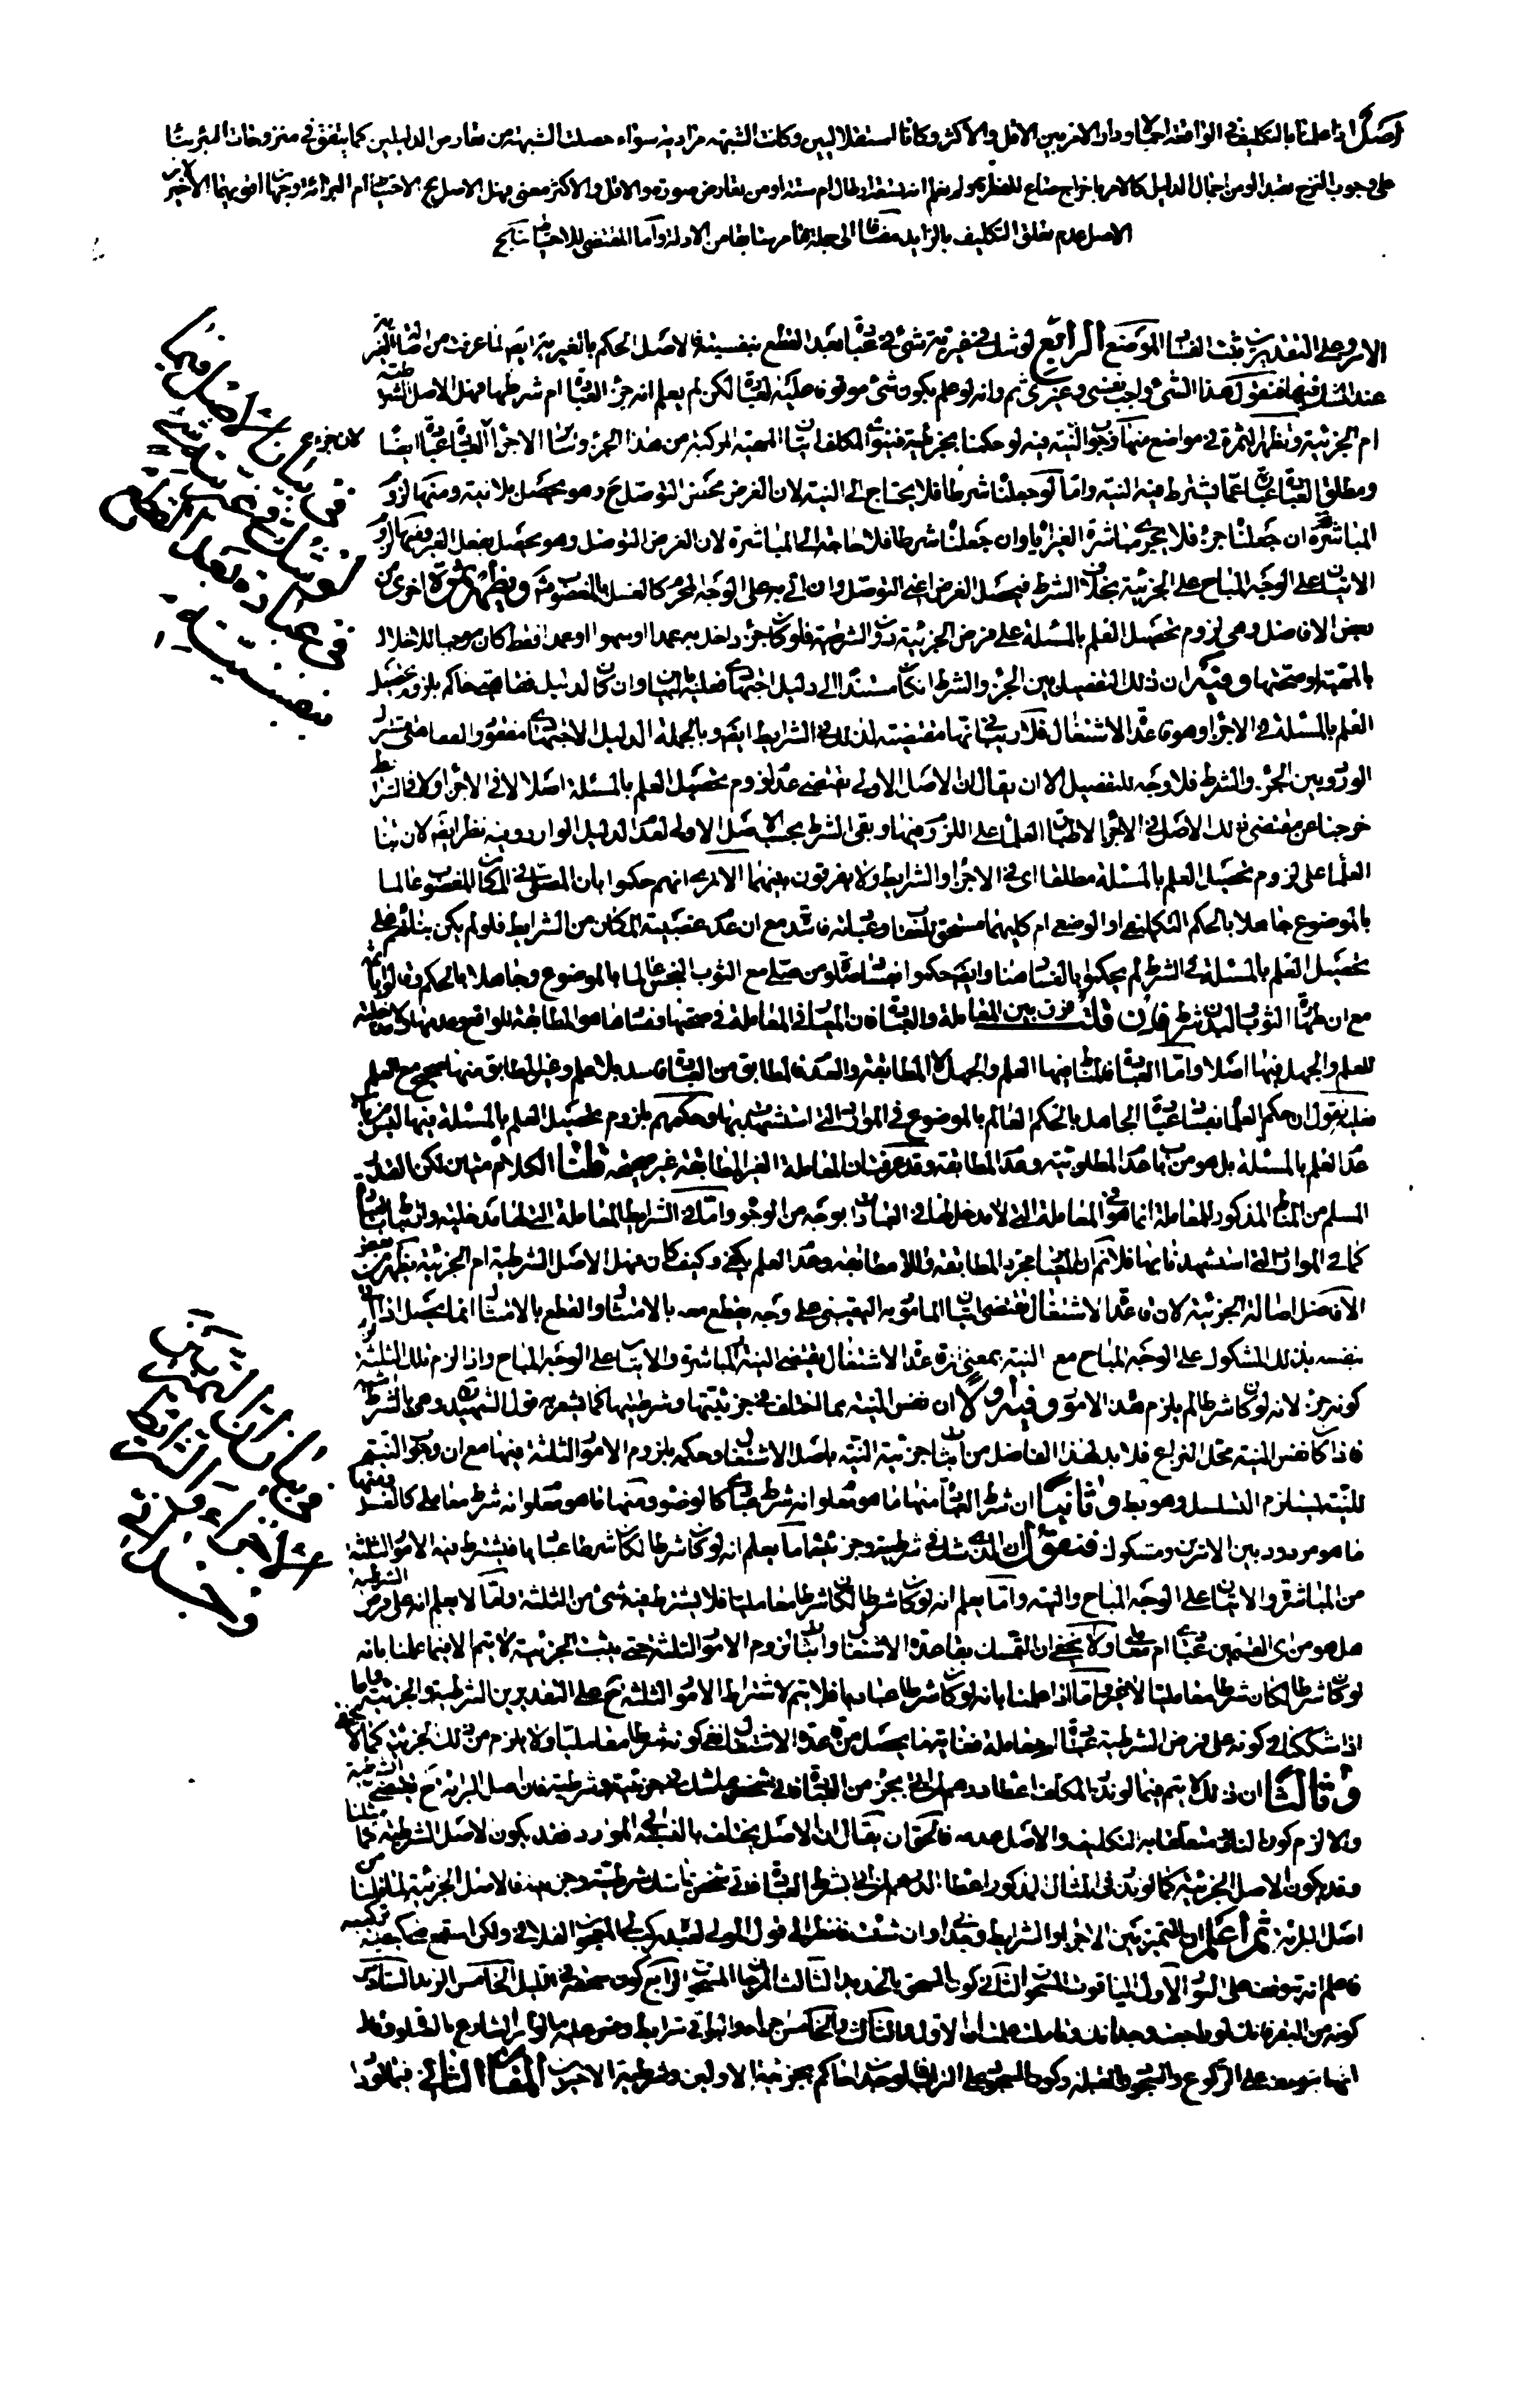 اصل اذا علمنا بالتكليف في الواقعة اجمالا ودار الامر بين الاقل والاكثر وكانا استقلاليين وكانت الشبهة مرادية سواء حصلت الشبهة من تعارض الدليلين كما يتفق في منزوحات البئر بناء
على وجوب النزح تعبدا او من اجمال الدليل كالامر باخراج صاع للفطرة ولم يعلم انه تسعة ارطال ام ستة او من تعارض صورة والاقل والاكثر معنى فهل الاصل ح الاحتياط ام البرائة وجهان اقويهما الاخير لان
الاصل عدم تعلق التكليف بالزايد مضافا الى جملة مما مر سابقا من الادلة واما المقتضى للاحتياط
الامر وعلى التقديرين يثبت الفساد الموضع الرابع لو شك في غيرية شئ في عبادة بعد القطع بنفسيته فالاصل الحكم بالغيرية ايضا لما عرفت من اصالة الغيرية
عند الشك فيها فنقول هذا الشئ واجب نفسي وغيري ثم وانه لو علم بكون شئ موقوفا عليه لعبادة لكن لم يعلم انه جزء العبادة ام شرطها فهل الاصل الشرطية
ام الجزئية وتظهر الثمرة في مواضع منها وجوب النية فيه لو حكمنا بجزئيته فينوي المكلف اتيان الهيئة المركبة من هذا الجزء وسائر الاجزاء لان جزء العبادة عبادة ايضا
ومطلق العبادة عما يشترط فيه النية واما لو جعلناه شرطا فلا يحتاج الى النية لان الغرض محض التوصل ح وهو يحصل بلا نية ومنها لزوم
المباشرة ان جعلناه جزء فلا يجزي مباشرة الغير اياه وان جعلناه شرطا فلا حاجة الى المباشرة لان الغرض التوصل وهو يحصل بفعل الغير ومنها لزوم
الاتيان على الوجه المباح على الجزئية بخلاف الشرط فيحصل الغرض اعني التوصل وان اتى به على الوجه المحرم كالغسل بالماء المغصوب ويظهر ثمرة اخرى من
بعض الافاضل وهي لزوم تحصيل العلم بالمسئلة على فرض الجزئية دون الشرطية فلو كان جزء داخل به عمدا او سهوا او عمدا فقط كان موجبا للاخلال
بالهيئة او صحتها وفيه ان ذلك التفصيل بين الجزء والشرط ان كان مستندا الى دليل اجتهادي فعليه بالبيان وان كان الدليل قضائه حاكم بلزوم تحصيل
العلم بالمسئلة في الاجزاء وهو قاعدة الاشتغال فلا ريب في انها مقتضية لذلك في الشرايط ايضا وبالجملة الدليل الاجتهادي مفقود والفقاهتي مشترك
الورود بين الجزء والشرط فلا وجه للتفصيل الا ان يقال ان الاصل الاولي يقتضي عدم لزوم تحصيل العلم بالمسئلة اصلا لا في الاجزاء ولا في الشرايط
خرجنا عن مقتضى ذلك الاصل في الاجزاء لاطباق العلماء على اللزوم فيها وبقى الشرط بحسب الاصل الاولي لعدم الدليل الوارد وفيه نظر ايضا لان بناء
العلماء على لزوم تحصيل العلم بالمسئلة مطلقا اي في الاجزاء والشرايط ولا يفرقون بينهما الا ترى انهم حكموا بان المصلي في المكان المغصوب عالما
بالموضوع جاهلا بالحكم التكليفي او الوضعي ام كليهما مستحق للعقاب وعبادته فاسدة مع ان عدم غصبية المكان من الشرايط فلو لم يكن بنائهم على
تحصيل العلم بالمسئلة في الشرط لم يحكموا بالفساد هنا وايضا حكموا بفساد صلوة من صلى مع الثوب النجس عالما بالموضوع وجاهلا بالحكم
مع ان طهارة الثوب والبدن شرط فان قلت فرق بين المعاملة والعبادة فان المعيار في المعاملة في صحتها وفسادها هو المطابقة للواقع وعدمها ولا مدخلية
للعلم والجهل فيها اصلا واما العبادة فالمناط فيها العلم والجهل لا المطابقة والعدم فالمطابق من العبادة فاسدة بلا علم وغير المطابق منها صحيح مع العلم
فنقول ان حكم العلماء بفساد عبادة الجاهل بالحكم العالم بالموضوع في الموارد التي استشهدت بها وحكمهم بلزوم تحصيل العلم بالمسئلة فيها ليس من باب
عدم العلم بالمسئلة بل هو من باب عدم المطلوبية وعدم المطابقة وقد عرفت ان المعاملة الغير المطابقة غير صحيحة قلنا الكلام متين لكن القدر
المسلم من المناط المذكور للمعاملة انما هو في المعاملة التي لا مدخل لها في العبادات بوجه من الوجوه واما في الشرايط المعاملة التي لها مدخلية وارتباط بالعبادة
كما في الموارد التي استشهدنا بها فلا نم ان المعيار مجرد المطابقة واللا مطابقة وعدم العلم يكفي وكيف كان فهل الاصل الشرطية ام الجزئية يظهر من بعض
الافاضل اصالة الجزئية لان قاعدة الاشتغال تقتضي اتيان المأمور به اليقيني على وجه يقطع معه بالامتثال والقطع بالامتثال انما يحصل اذا اتى
بنفسه بذلك المشكوك على الوجه المباح مع النية بمعنى ان قاعدة الاشتغال يقتضي النية والمباشرة والاتيان على الوجه المباح واذا لزم تلك الثلثة
كونه جزء لانه لو كان شرطا لم يلزم هذه الامور وفيه اولا ان نفس النية مما اختلف في جزئيتها وشرطيتها كما يشعر به قول الشهيد وهي بالشرط اشبه
فاذا كان نفس النية محل النزاع فلا بد لهذا الفاضل من اثبات جزئية النية باصل الاشتغال وحكمه بلزوم الامور الثلثة فيها مع ان وجوب النية
للنية يستلزم التسلسل وهو بط وثانيا ان شرط العبادة منها ما هو معلوم انه شرط عبادي كالوضوء ومنها ما هو معلوم انه شرط معاملي كالغسل ومنها
ما هو مردد بين الامرين ومشكوك فنقول ان الذي شك في شرطيته وجزئيته اما يعلم انه لو كان شرطا لكان شرطا عباديا فيشترط فيه الامور الثلثة
من المباشرة والاتيان على الوجه المباح والنية واما يعلم انه لو كان شرطا لكان شرطا معامليا فلا يشترط فيه شئ من الثلثة واما لا يعلم انه على فرض الشرطية
هل هو من اي القسمين عبادي ام معاملي ولا يخفى ان التمسك بقاعدة الاشتغال واثبات لزوم الامور الثلثة حتى يثبت الجزئية لا يتم الا فيما علمنا بانه
لو كان شرطا لكان شرطا معامليا لا غير واما اذا علمنا بانه لو كان شرطا عباديا فلا يتم لاشتراط الامور الثلثة ح على التقديرين الشرطية والجزئية واما
اذا شككنا في كونه على فرض الشرطية عباديا او معاملة فغايتها يحصل من قاعدة الاشتغال نفي كونه شرطا معامليا ولا يلزم من ذلك الجزئية كما لا يخفى
وثالثا ان ذلك لا يتم فيما لو نذر المكلف اعطاء درهم لمن اتى بجزء من العبادة فاتى شخص بما شك في جزئيته وشرطيته فان اصل البرائة ح يقتضي الشرطية
والا لزم كون الناذر متعلقا به التكليف والاصل عدمه فالحق ان يقال ان الاصل يختلف بالنسبة الى الموارد فقد يكون الاصل الشرطية كما مثلنا
وقد يكون الاصل الجزئية كما لو نذر في المثال المذكور اعطاء الدرهم لمن اتى بشرط العبادة فاتى شخص بما شك في شرطيته وجزئيته فالاصل الجزئية لما قلنا من
اصل البرائة ثم اعلم ان التميز بين الاجزاء والشرايط وجداني وان شئت فانظر الى قول المولى لعبده ركب لي المعجون الفلاني ولكن استمع مني كيفية تركيبه
فاعلم انه يتوقف على امور الاول الياقوت المسحوق الثاني كون السحق بالحديد الثالث المرجان المسحوق الرابع كون سحقه في الليل الخامس الزبد السادس
كونه من البقر
انها يتوقف على الركوع والسجود والقبلة وكون السجود على التراب لوجدانا حاكم بجزئية الاولين وشرطية الاخيرين المقام الثاني فيما لو
في بيان الاصل فيما
لو شك في غيرية شئ
في عبادة بعد القطع
بنفسيته
في بيان ان التميز بين
الاجزاء والشرايط
وجداني